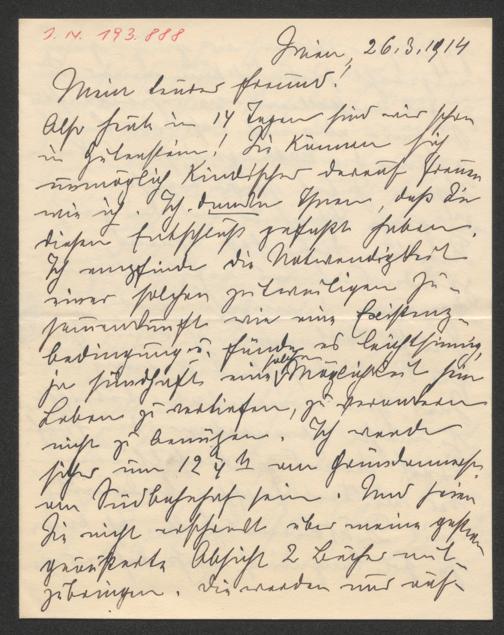 J. N. 193.888
Wien, 26.3.1914
Mein teurer Freund!
Also heute in 14 Tagen sind wir schon
in Gutenstein! Sie können sich
unmöglich kindischer darauf freuen
wie ich. Ich danke Ihnen, daß Sie
diesen Entschluß gefaßt haben.
Ich empfinde die Notwendigkeit
einer solchen zeitweiligen Zu-
sammenkunft wie eine Existenz-
bedingung u. fände es leichtsinnig,
ja sündhaft eine solche Möglichkeit sein
Leben zu vertiefen, zu
nicht zu benützen. Ich werde
sicher um 12 am Gründonnerstag
am Südbahnhof sein. Und seien
Sie nicht erschreckt über meine gestern
geäußerte Absicht 2 Bücher mit-
zubringen. Die werden nur